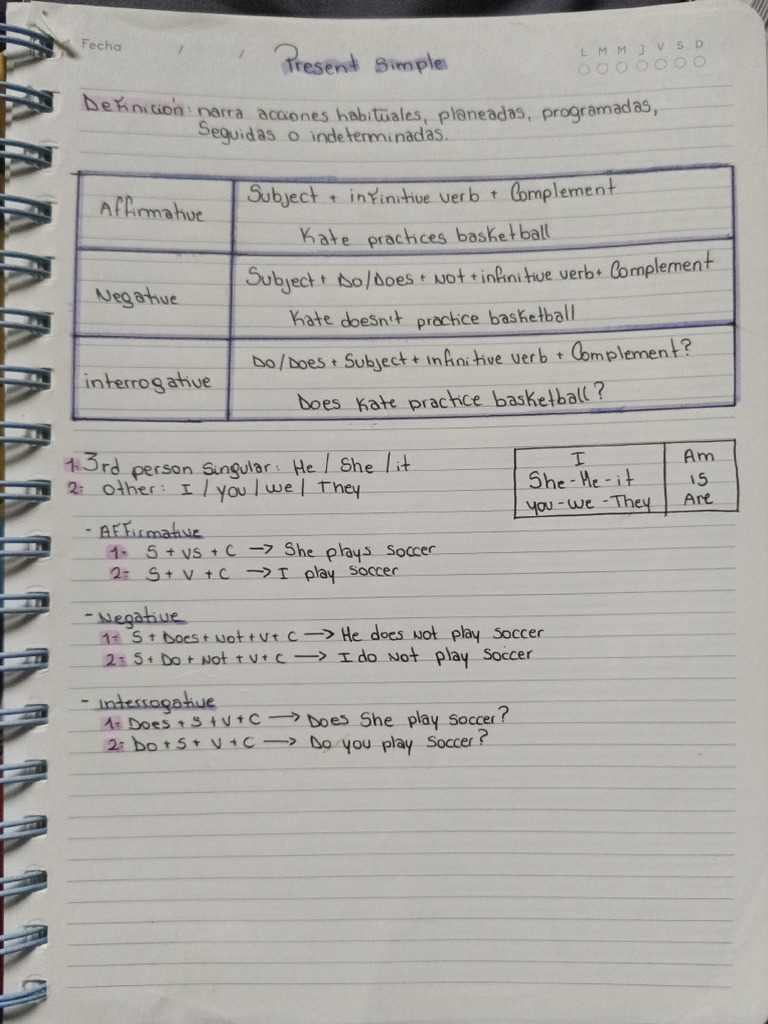 Fecha / /
L M M J V S D
Present simple
Definición: narra acciones habituales, planeadas, programadas,
Seguidas o indeterminadas.
Affirmative
Subject + infinitive verb + Complement
Kate practices basketball
Negative
Subject + Do/Does + Not + infinitive verb + Complement
Kate doesn't practice basketball
interrogative
Do/Does + Subject + Infinitive verb + Complement?
Does Kate practice basketball?
1: 3rd person singular: He / She / it
2: other: I / you / we / They
I Am
She - He - it is
you - we - They Are
- Affirmative
1: S + Vs + C → She plays soccer
2: S + V + C → I play soccer
- Negative
1: S + Does + Not + V + C → He does Not play soccer
2: S + Do + Not + V + C → I do Not play soccer
- Interrogative
1: Does + S + V + C → Does She play soccer?
2: Do + S + V + C → Do you play soccer?